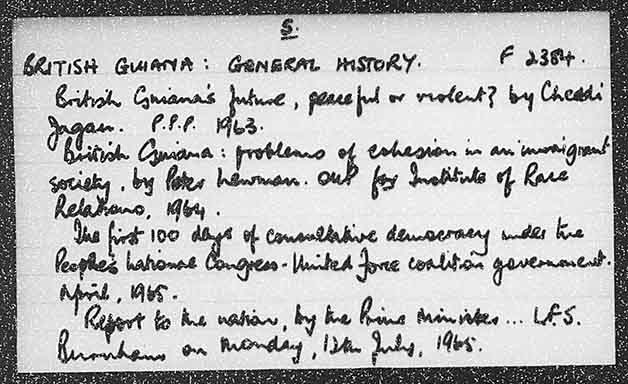 S.
BRITISH GUIANA: GENERAL HISTORY. F 2384.
British Guiana's future, peaceful or violent? by Cheddi
Jagan. P.P.P. 1963.
British Guiana: problems of cohesion in an immigrant
society, by Peter Newman. OUP for Institute of Race
Relations, 1964.
The first 100 days of consultative democracy under the
People's National Congress - United Force coalition government.
April, 1965.
Report to the nation, by the Prime Minister... L.F.S.
Burnham on Monday, 12th July, 1965.